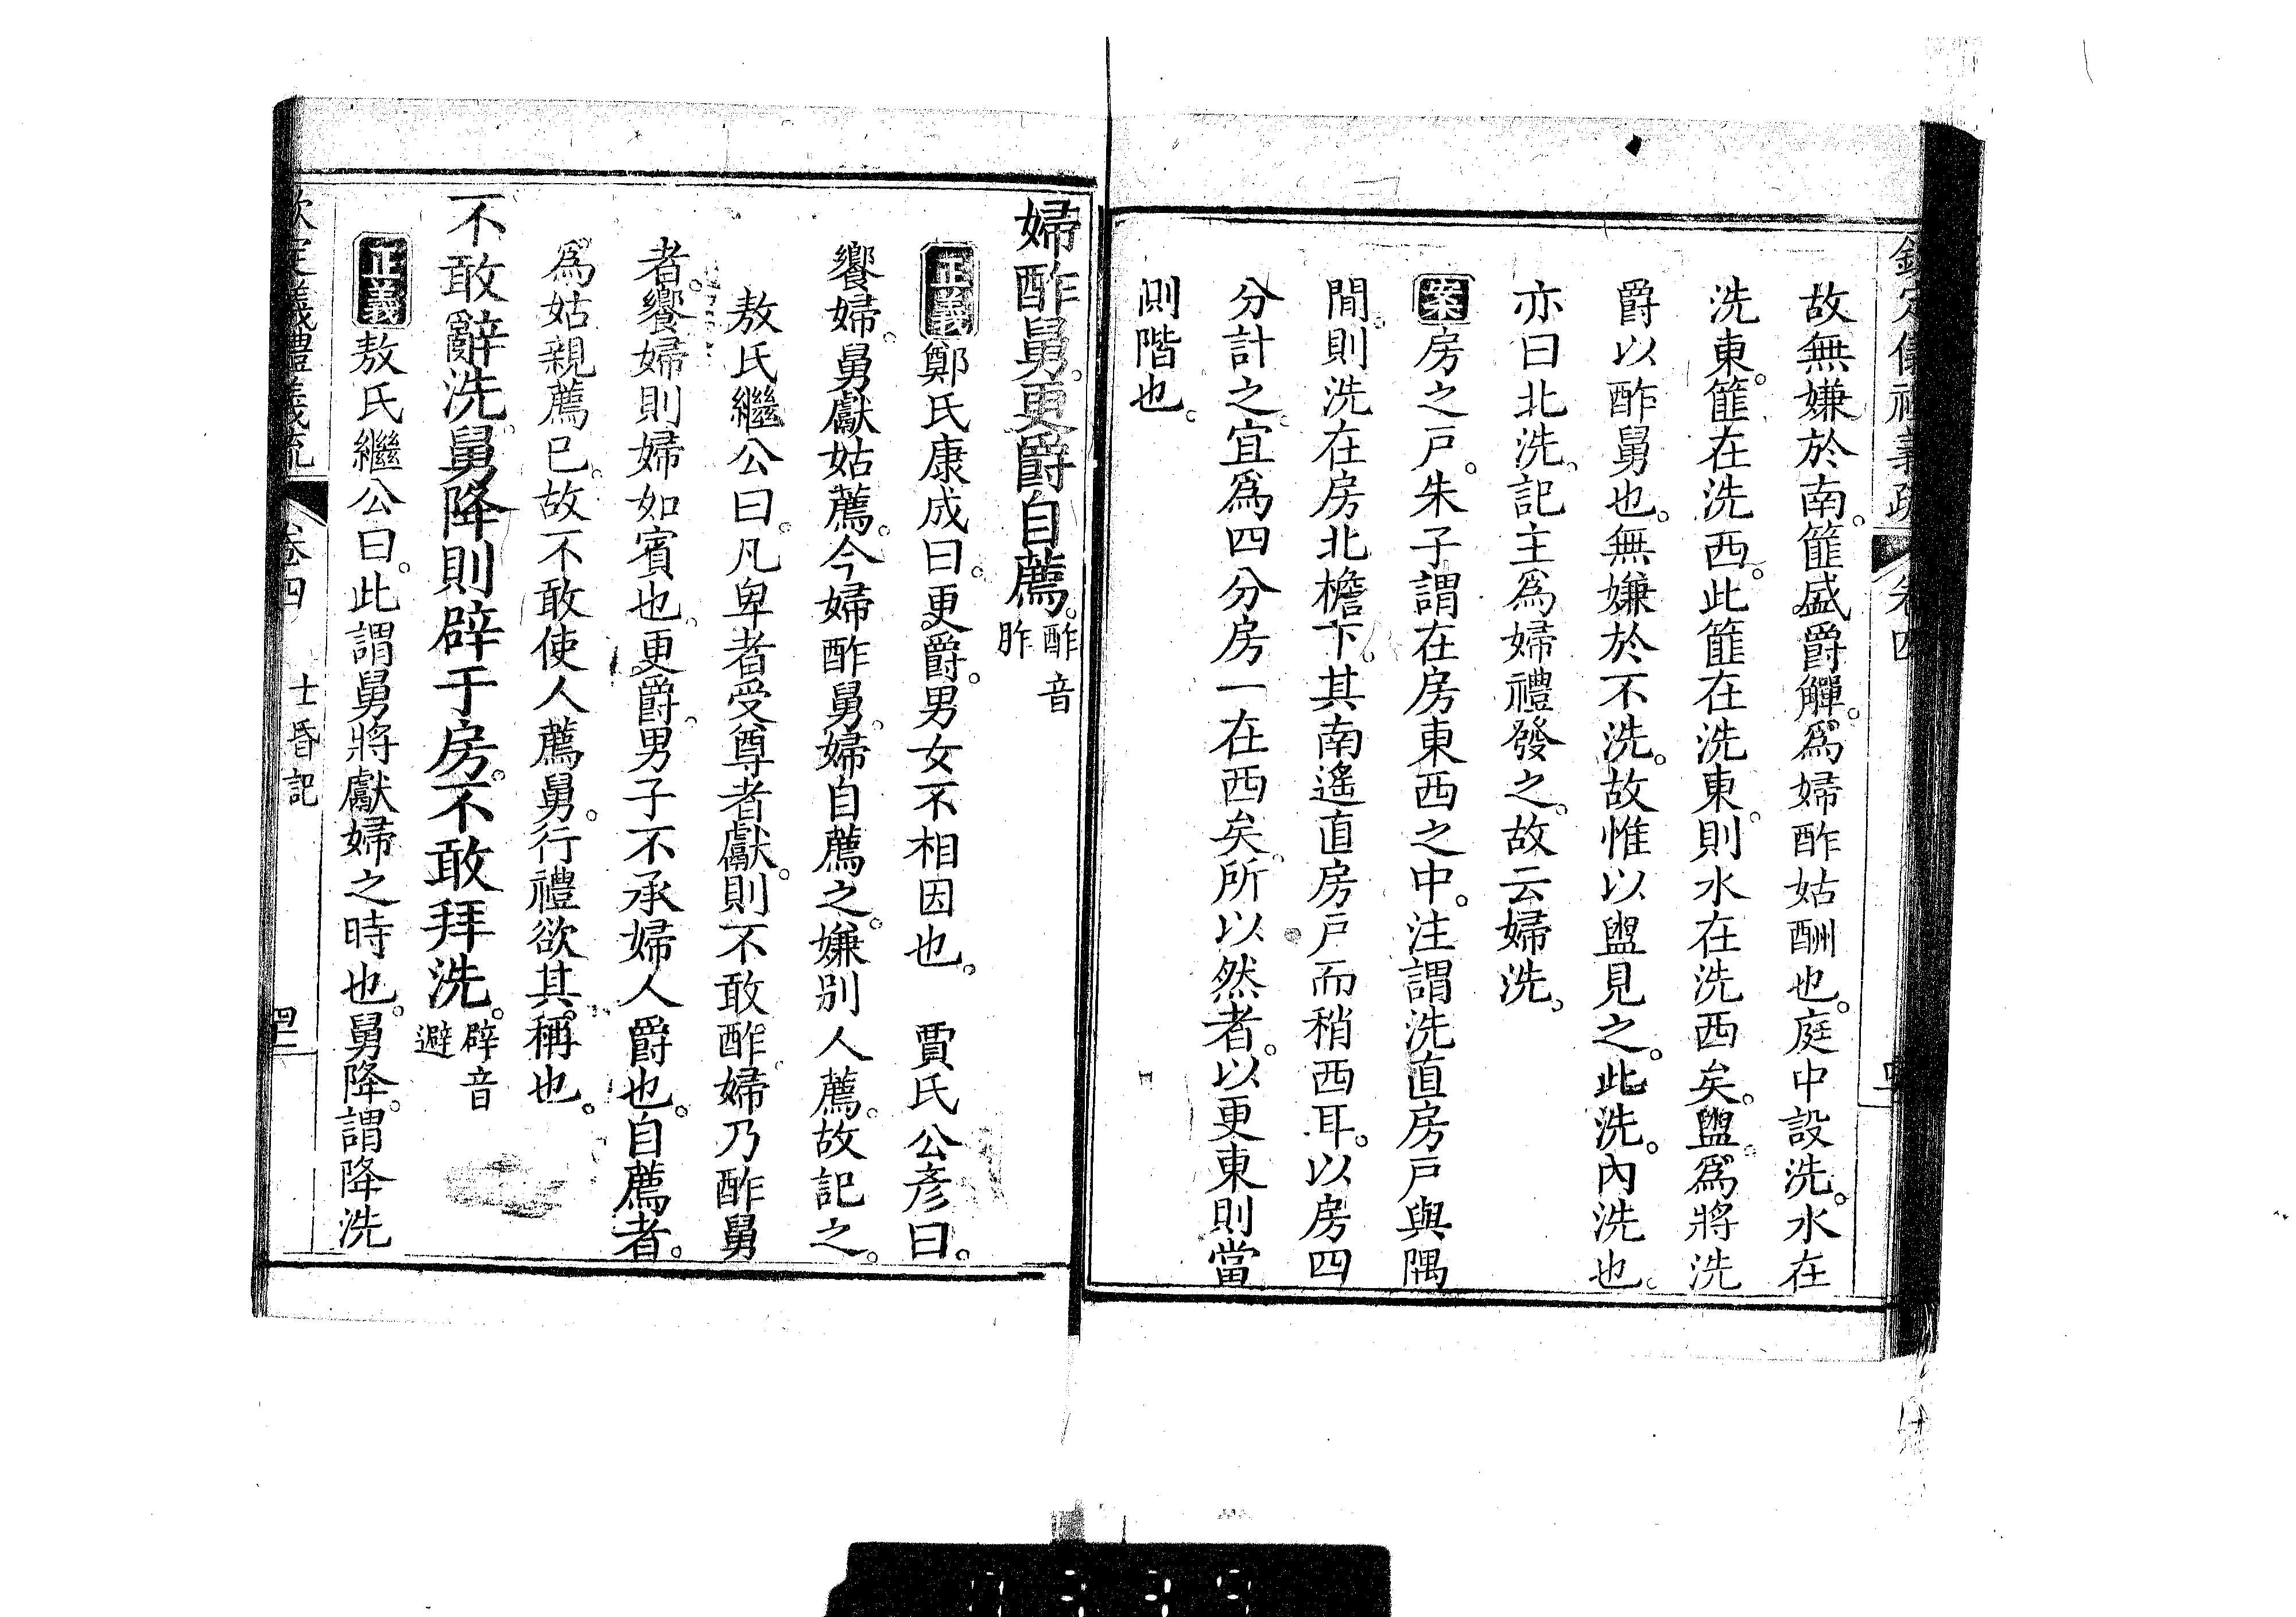 欽定儀禮義疏　卷四
故無嫌於南。篚盛爵觶。爲婦酢姑酬也。庭中設洗。水在
洗東。篚在洗西。此篚在洗東。則水在洗西矣。盥。爲將洗
爵以酢舅也。無嫌於不洗。故惟以盥見之。此洗。內洗也。
亦曰北洗。記主爲婦禮發之。故云婦洗。
案房之戸。朱子謂在房東西之中。注謂洗直房戸與隅
間。則洗在房北檐下。其南遙直房戸而稍西耳。以房四
分計之。宜爲四分房一在西矣。所以然者。以更東則當
側階也。
婦酢舅。更爵自薦。酢音
胙
正義鄭氏康成曰。更爵。男女不相因也。　賈氏公彥曰。
饗婦。舅獻姑薦。今婦酢舅。婦自薦之。嫌別人薦。故記之。
敖氏繼公曰。凡卑者受尊者獻。則不敢酢。婦乃酢舅
者。饗婦則婦如賓也。更爵。男子不承婦人爵也。自薦者。
爲姑親薦已。故不敢使人薦舅。行禮欲其稱也。
不敢辭洗。舅降則辟于房。不敢拜洗。辟音
避
正義敖氏繼公曰。此謂舅將獻婦之時也。舅降。謂降洗
欽定儀禮義疏　卷四　士昏記　四二